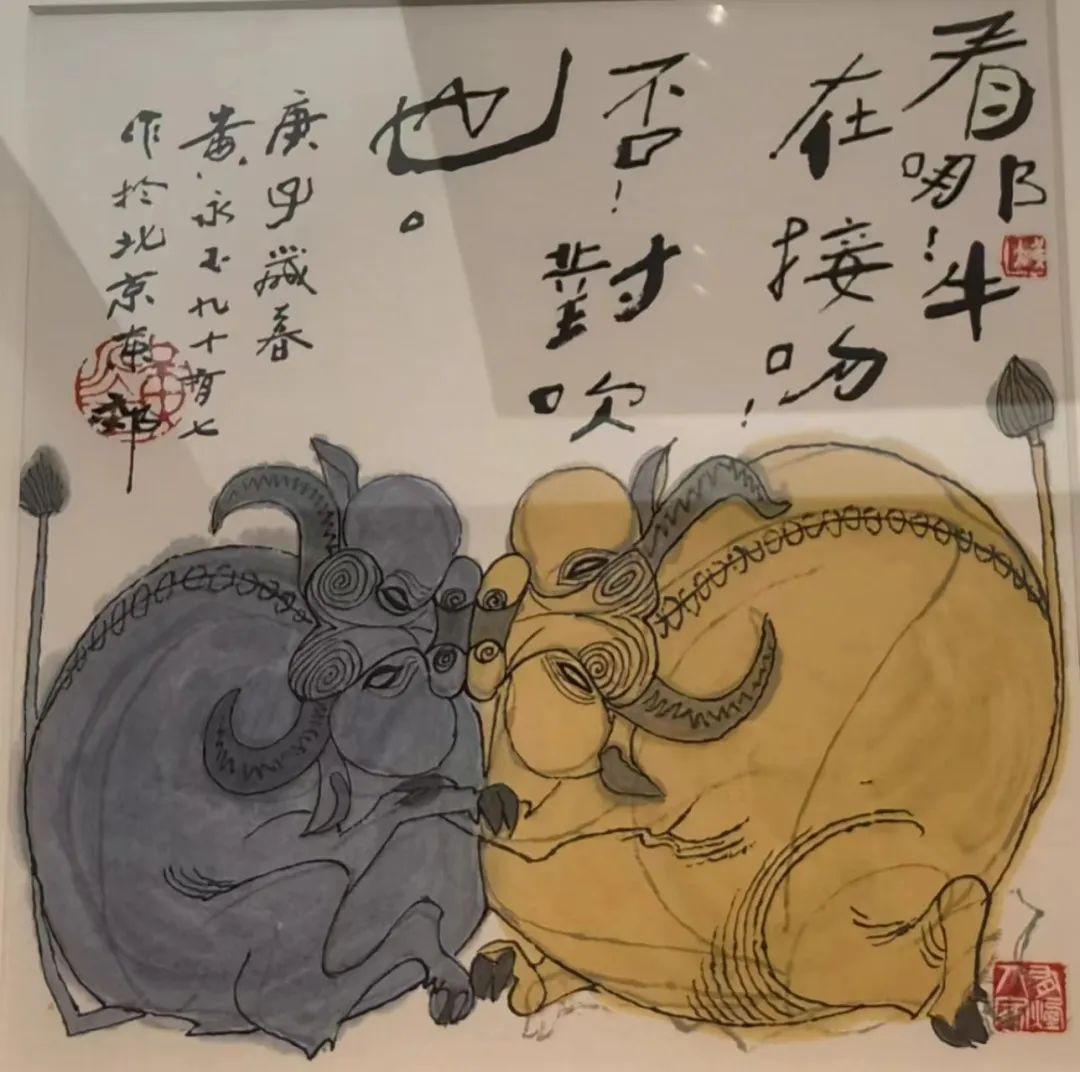 看哪！牛
在接吻！
否！對吹
也。
庚子歲春
黄永玉九十有七
作於北京東郊